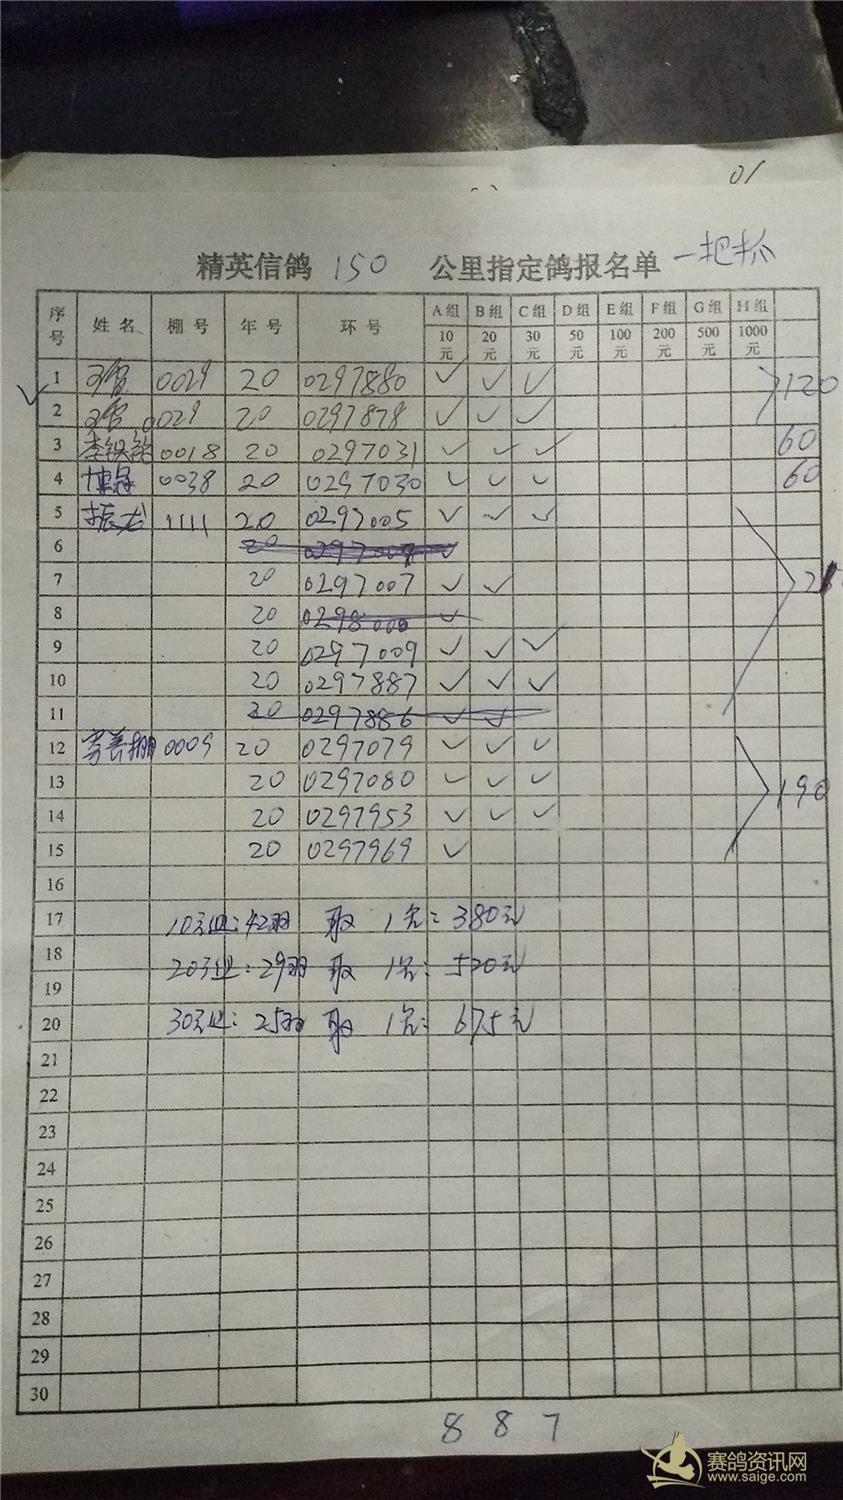 01
精英信鸽 150 公里指定鸽报名单 一把抓
序号 姓名 棚号 年号 环号 A组 B组 C组 D组 E组 F组 G组 H组
10元 20元 30元 50元 100元 200元 500元 1000元
1 0029 20 0297880 ✓ ✓ ✓ 120
✓ 2 0029 20 0297878 ✓ ✓ ✓
3 李铁铭 0018 20 0297031 ✓ ✓ ✓ 60
4 0038 20 0297030 ✓ ✓ ✓ 60
5 振龙 1111 20 0297005 ✓ ✓ ✓
6 20
7 20 0297007 ✓ ✓
8 20 ✓
9 20 0297009 ✓ ✓ ✓
10 20 0297887 ✓ ✓ ✓
11 20 0297886 ✓ ✓
12 0009 20 0297079 ✓ ✓ ✓
13 20 0297080 ✓ ✓ ✓ 190
14 20 0297953 ✓ ✓ ✓
15 20 0297969 ✓
16
17 10元组:42羽 取 1名:380元
18
19 20元组:29羽 取 1名:520元
20 30元组:25羽 取 1名:675元
21
22
23
24
25
26
27
28
29
30
8 8 7
赛鸽资讯网
www.saige.com